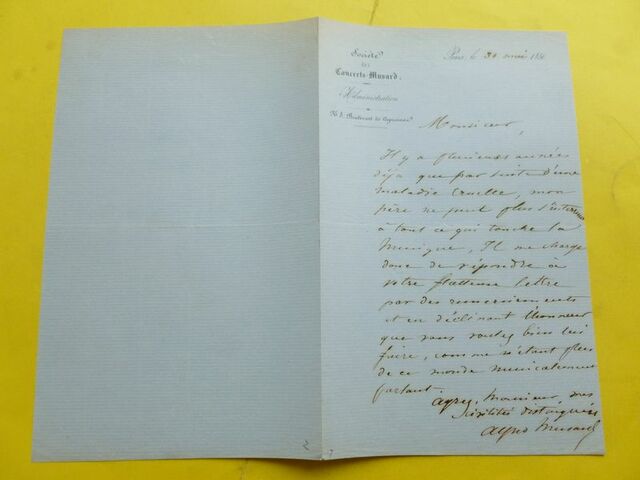 Société
des
Concerts-Musard.
Administration
Paris, le 31 mai 18
Monsieur,
Il y a plusieurs années
déjà que par suite d'une
maladie cruelle, mon
père ne peut plus s'intéresser
à tout ce qui touche la
Musique, Il me charge
donc de répondre à
votre flatteuse lettre
par des remerciements
et en déclinant l'honneur
que vous voulez bien lui
faire, comme n'étant plus
de ce monde musicalement
parlant.
agréez, Monsieur, mes
Civilités distinguées
Alfred Musard
2